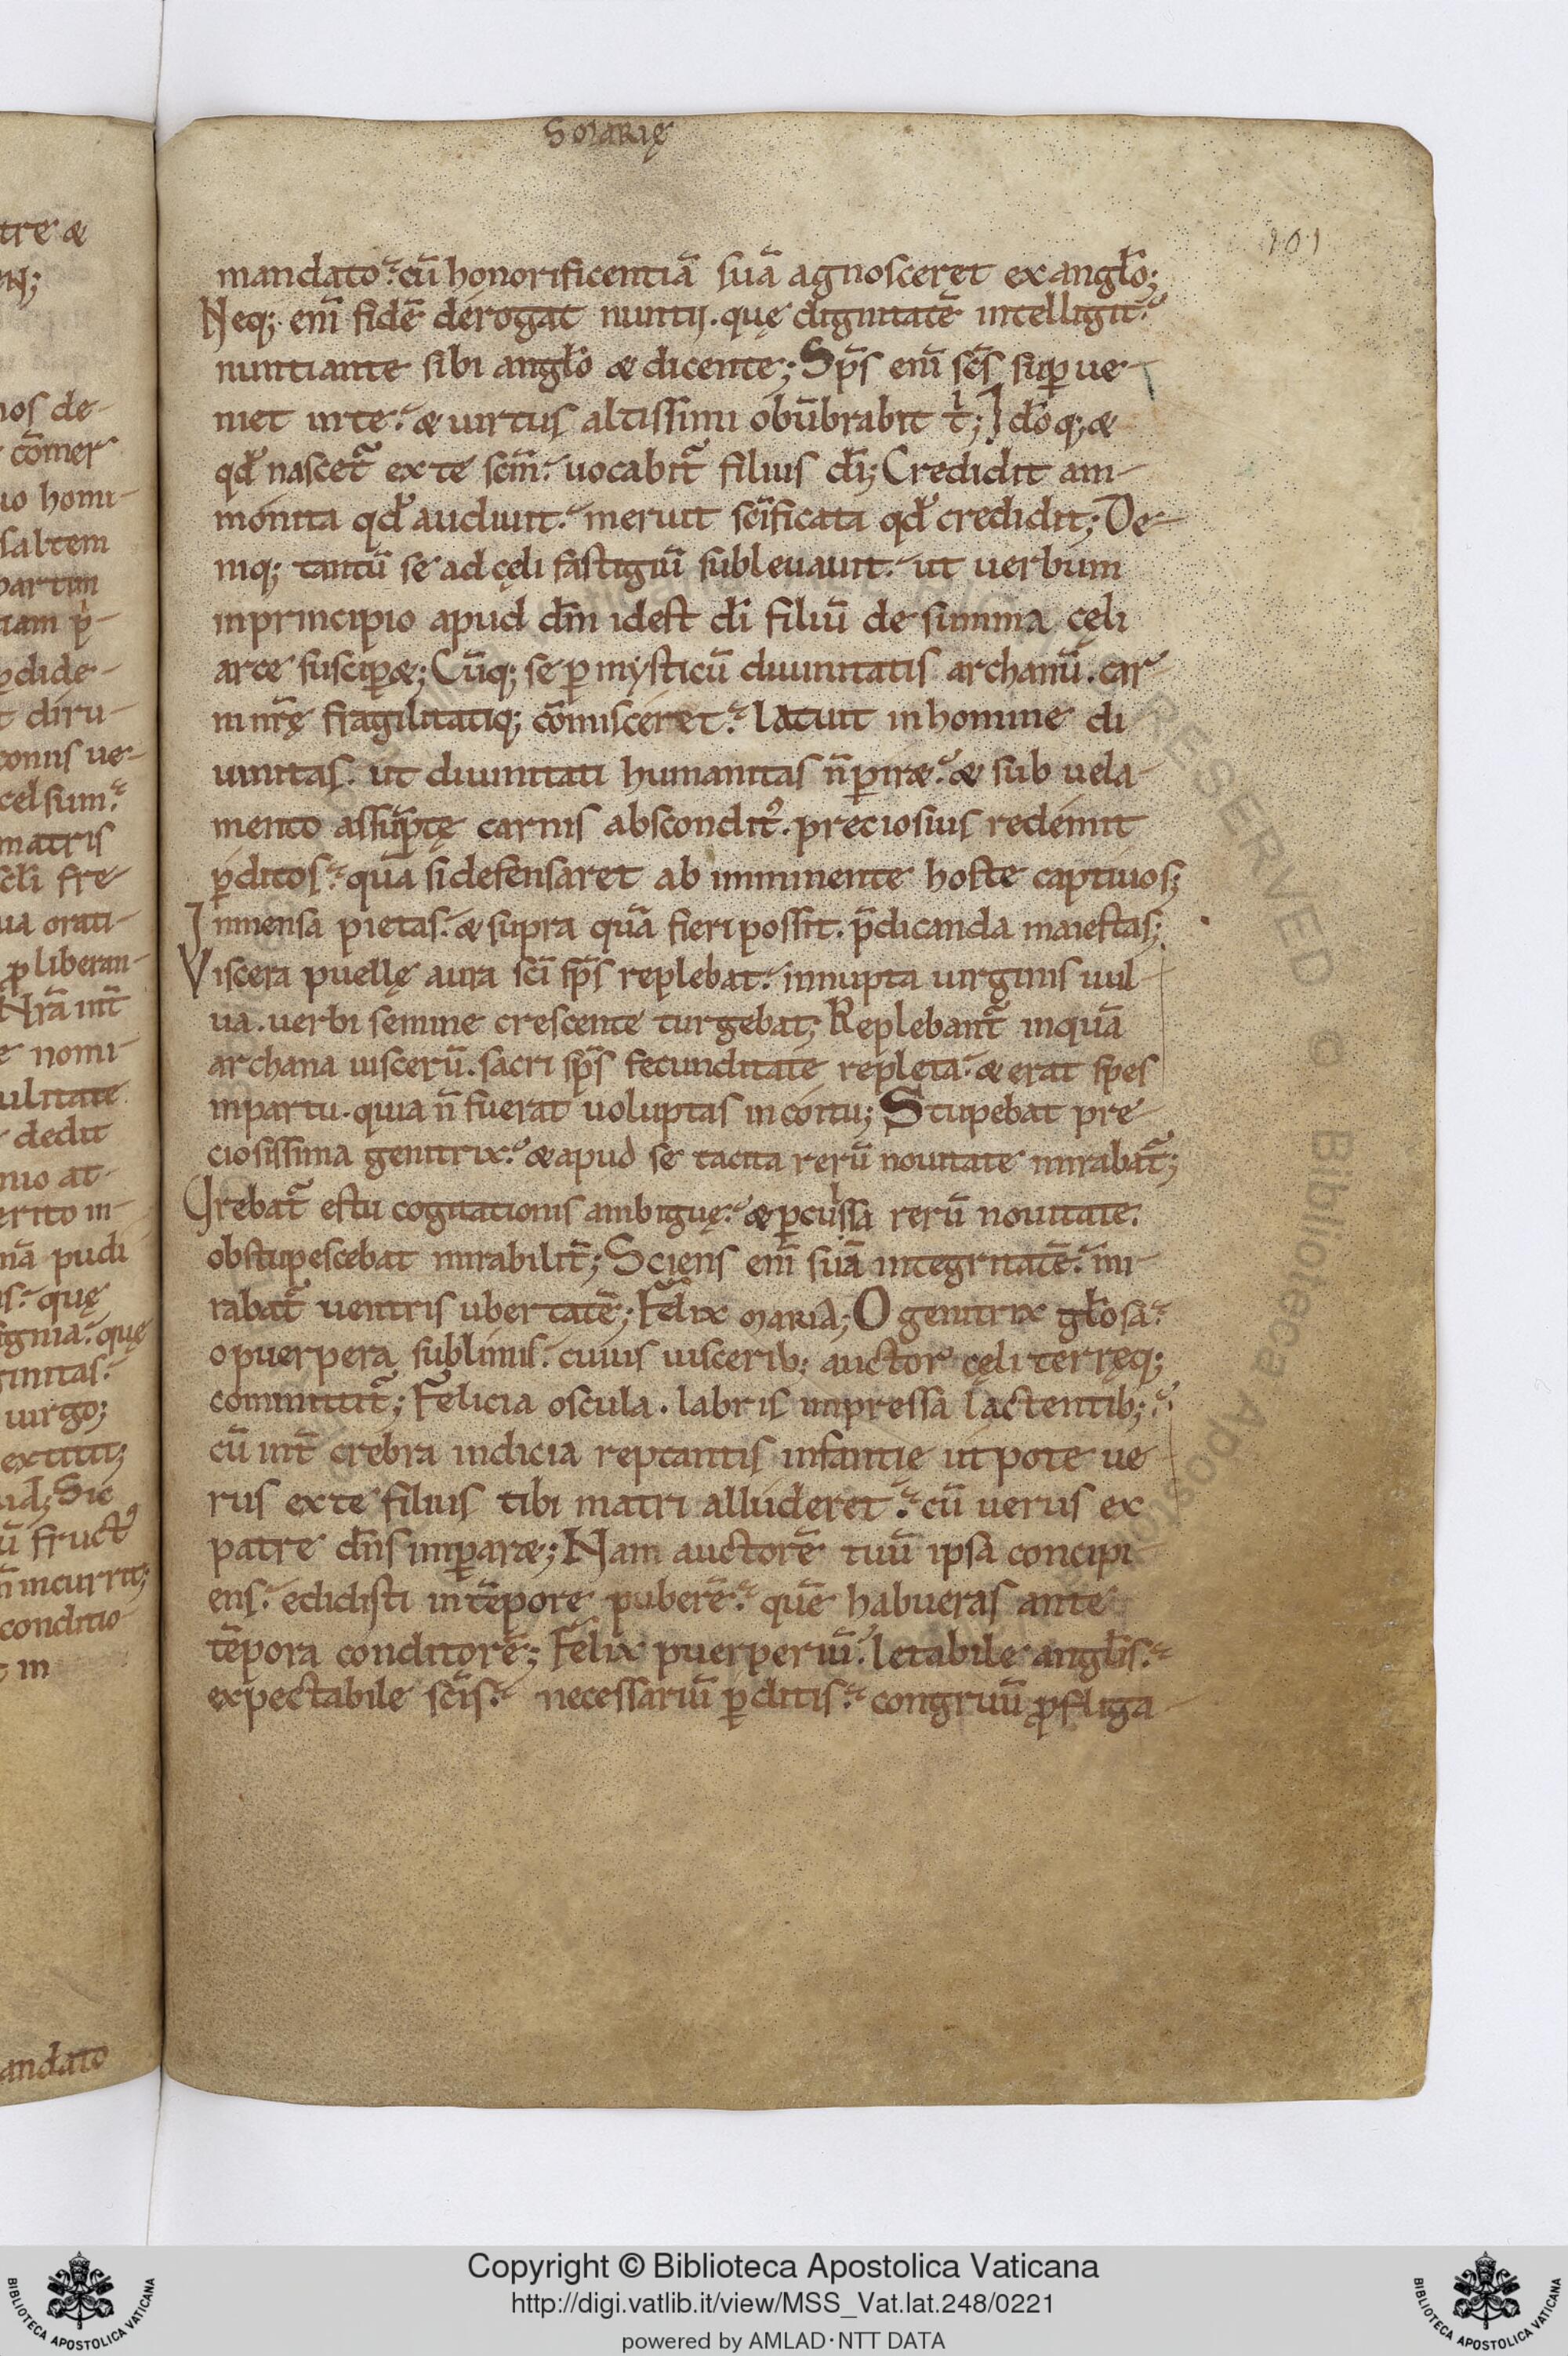 S MARIĘ
101
mandato. cū honorificentiā suā agnosceret ex anglo;
Neq; enī fidē derogat nuntij. quę dignitatē intelligit.
nuntiante sibi anglo & dicente; Sp̄s enī sc̄s sup̱ue-
niet in te. & uirtus altissimi obūbrabit t; Ido q; &
qđ nascet̄ ex te sc̄m. uocabit̄ filius dī; Credidit am-
monita qđ audiuit. meruit sc̄ificata qđ credidit; De-
niq; tantū se ad cęli fastigiū subleuauit. ut uerbum
in principio apud dm̄ id est dī filiū de summa cęli
arce suscip̱&; Cūq; se p̱ mysticū diuinitatis archanū. car-
ni nr̄ę fragilitatiq; cōmisceret. latuit in homine di
uinitas. ut diuinitati humanitas n̄ p̱ir&. & sub uela-
mento assūptę carnis abscondit᾿. preciosius redemit
p̱ditos. quā si defensaret ab imminente hoste captiuos;
Inmensa pietas. & supra quā fieri possit. p̄dicanda maiestas;
Viscera puellę aura sc̄i sp̄s replebat. innupta uirginis uul-
ua. uerbi semine crescente turgebat; Replebant̄ inquā
archana uiscerū. sacri sp̄s fecunditate repleta. & erat spes
in partu. quia n̄ fuerat uoluptas in coitu; Stupebat pre-
ciosissima genitrix. & apud se tacita rerū nouitate mirabat̄;
Girebat̄ estu cogitationis ambiguę. & p̱culssa rerū nouitate.
obstupescebat mirabilit̄; Sciens enī suā integritatē. mi-
rabat̄ uentris ubertatē; Felix MARIA; O genitrix glosa.
o puerpera sublimis. cuius uiscerib; auctor cęli terręq;
committit̄; Felicia oscula. labris impressa lactentib;.
cū int̄ crebra indicia reptantis infantię utpote ue
rus ex te filius tibi matri alluderet. cū uerus ex
patre dn̄s imp̱ar&; Nam auctorē tuū ipsa concipi
ens. edidisti in tēpore puberē. quē habueras ante
tēpora conditorē; Felix puerperiū. letabile anglis.
expectabile sc̄is. necessariū p̱ditis. congruū ꝓfliga-
Copyright © Biblioteca Apostolica Vaticana
http://digi.vatlib.it/view/MSS_Vat.lat.248/0221
powered by AMLAD·NTT DATA